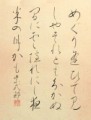 めぐり逢ひて見
しやそれともわかぬ
間に雲隠れにし夜
半の月かな